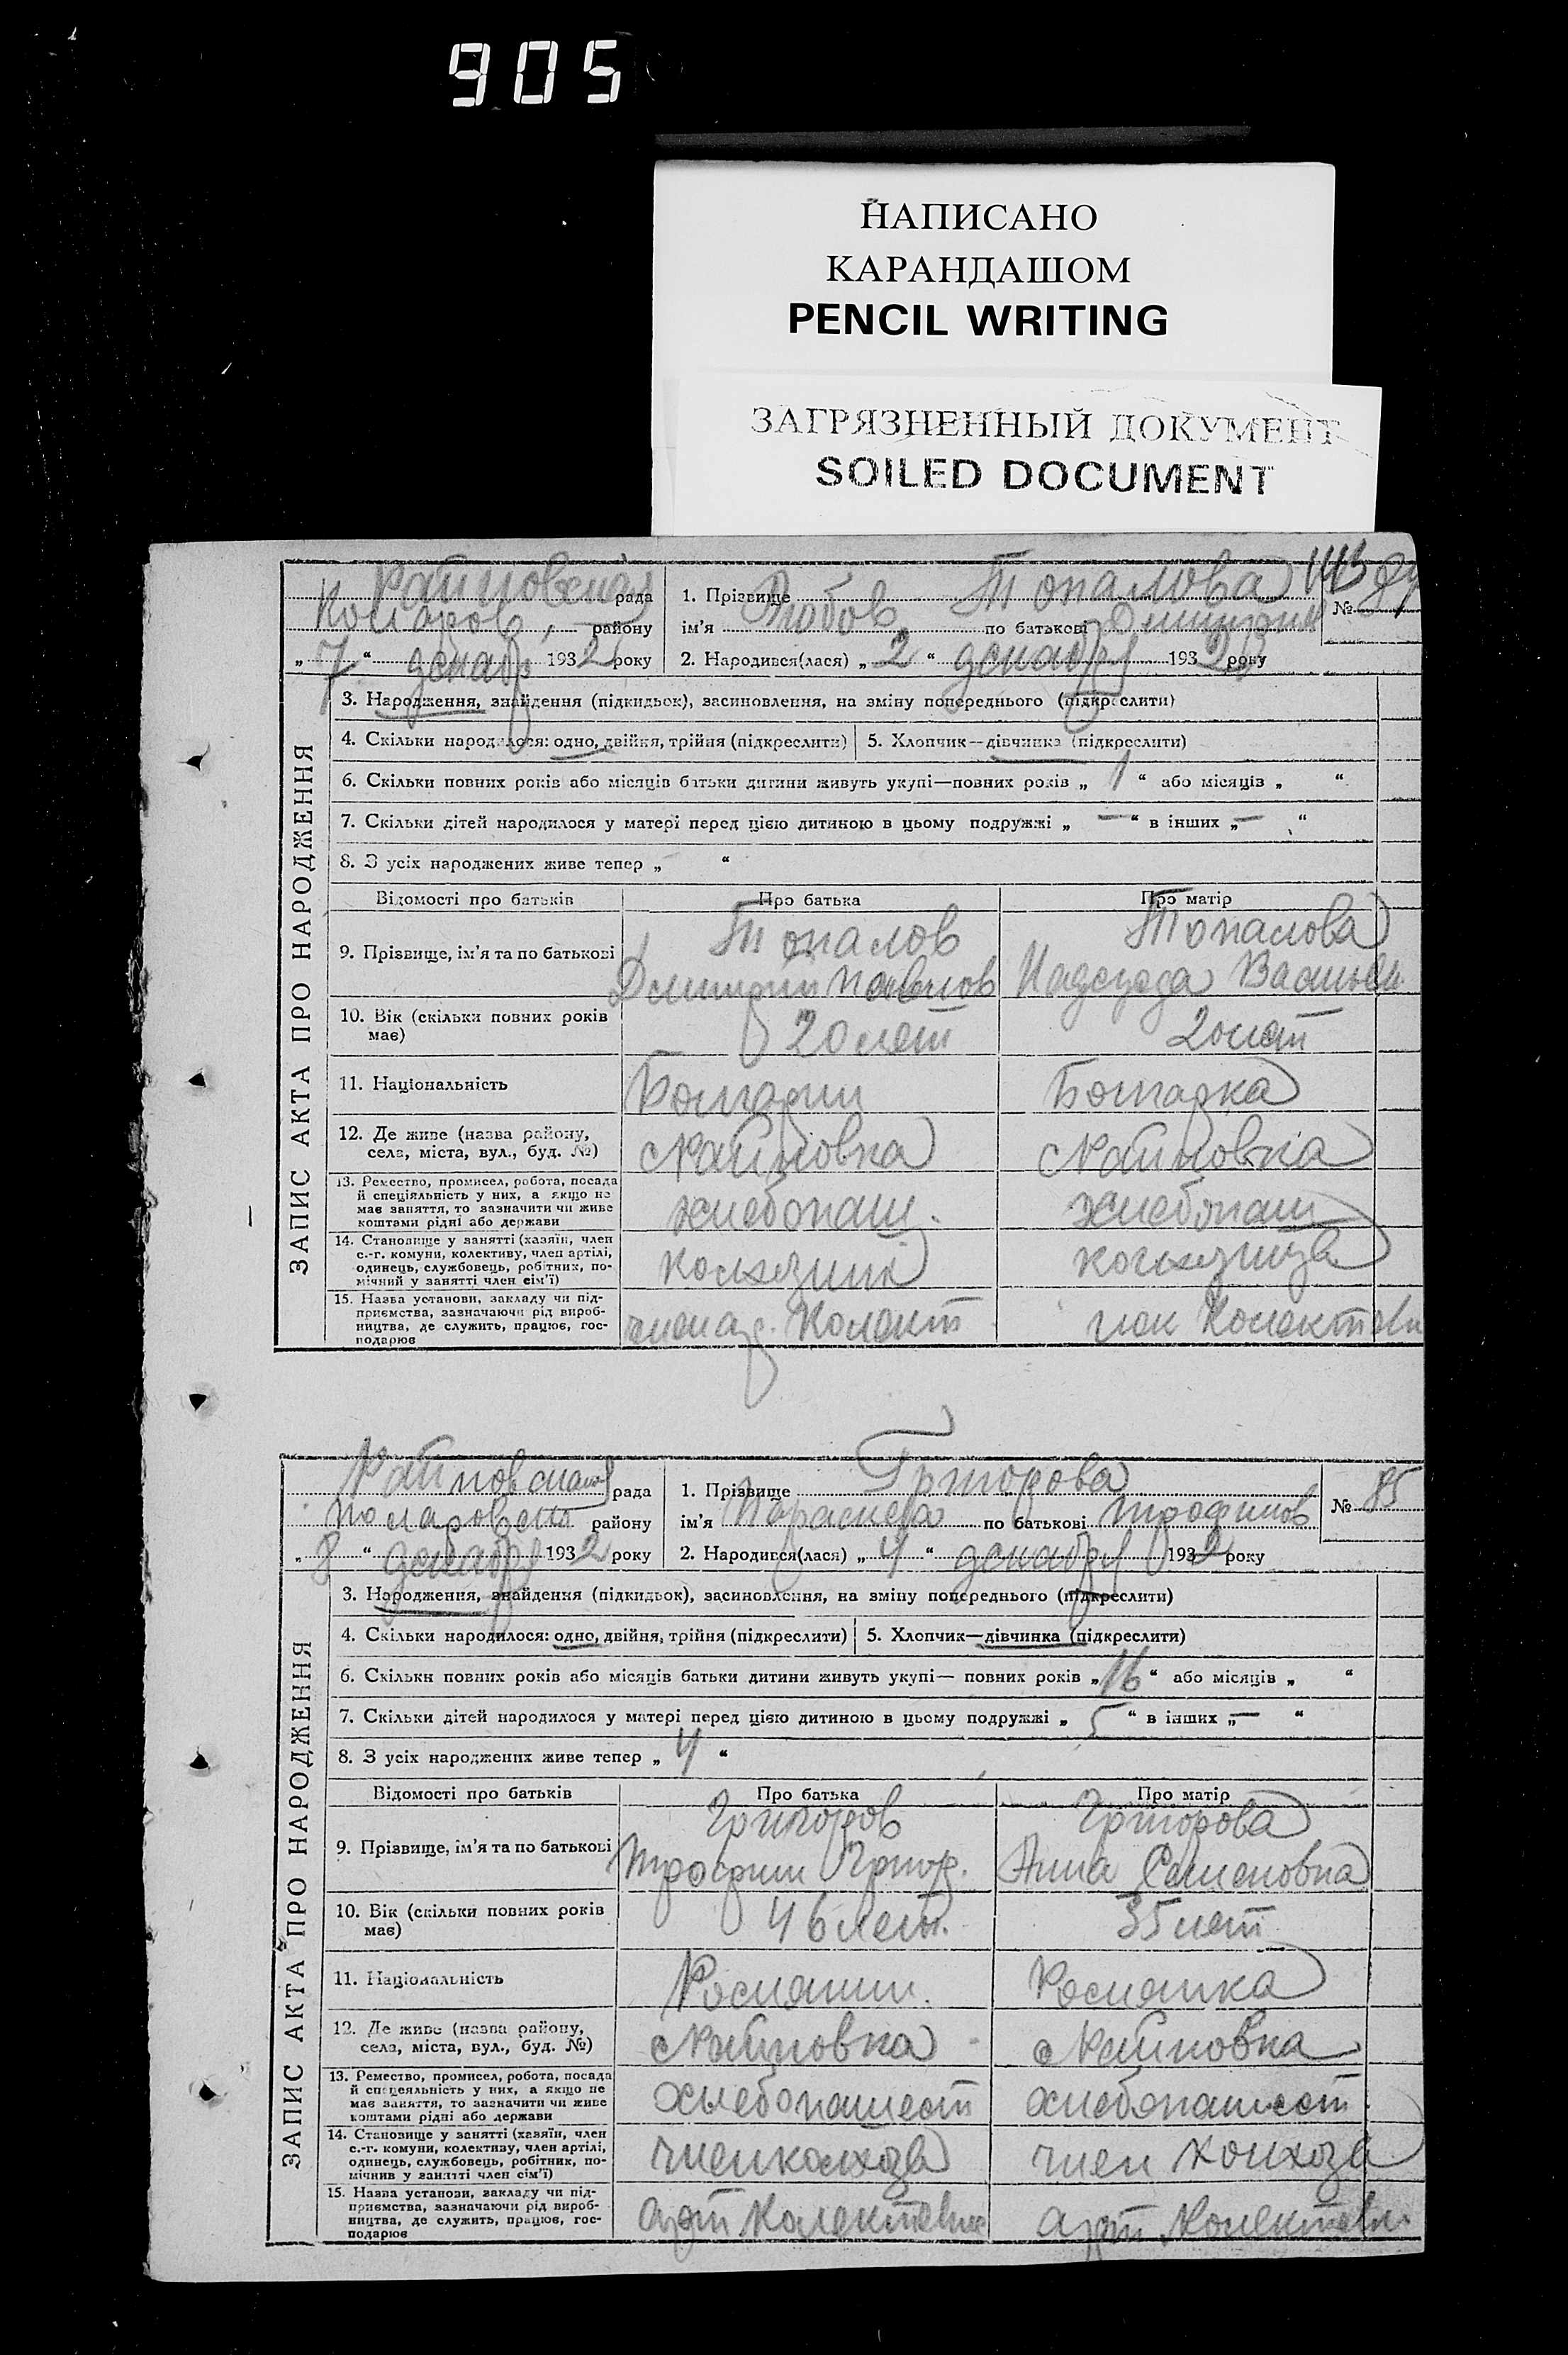 905
НАПИСАНО
КАРАНДАШОМ
PENCIL WRITING
ЗАГРЯЗНЕННЫЙ ДОКУМЕНТ
SOILED DOCUMENT
ЗАПИС АКТА ПРО НАРОДЖЕННЯ
рада
району
„7“ декабр 1932 року
1. Прізвище Топалова
ім’я Любов по батькові
№ 84
2. Народився(лася) „2“ декабря 1932 року
3. Народження, знайдення (підкидьок), засиновлення, на зміну попереднього (підкреслити)
4. Скільки народилося: одно, двійня, трійня (підкреслити) 5. Хлопчик—дівчинка (підкреслити)
6. Скільки повних років або місяців батьки дитини живуть укупі—повних років „1“ або місяців „ “
7. Скільки дітей народилося у матері перед цією дитиною в цьому подружжі „—“ в інших „—“
8. З усіх народжених живе тепер „ “
Відомості про батьків Про батька Про матір
9. Прізвище, ім’я та по батькові Топалов Топалова
10. Вік (скільки повних років має) 20 лет 20 лет
11. Національність Болгарин Болгарка
12. Де живе (назва району, села, міста, вул., буд. №) с Райновка с Райновка
13. Ремество, промисел, робота, посада
й спеціяльність у них, а якщо не
має заняття, то зазначити чи живе
коштами рідні або держави
хлебопаш. хлебопаш
14. Становище у занятті (хазяїн, член
с.-г. комуни, колективу, член артілі,
одинець, службовець, робітник, по-
мічний у занятті член сім’ї)
15. Назва установи, закладу чи під-
приємства, зазначаючи рід вироб-
ництва, де служить, працює, гос-
подарює
ЗАПИС АКТА ПРО НАРОДЖЕННЯ
рада
району
„8“ декабря 1932 року
1. Прізвище Григорова
ім’я по батькові Трофимов
№ 85
2. Народився(лася) „4“ декабря 1932 року
3. Народження, знайдення (підкидьок), засиновлення, на зміну попереднього (підкреслити)
4. Скільки народилося: одно, двійня, трійня (підкреслити) 5. Хлопчик—дівчинка (підкреслити)
6. Скільки повних років або місяців батьки дитини живуть укупі— повних років „16“ або місяців „ “
7. Скільки дітей народилося у матері перед цією дитиною в цьому подружжі „5“ в інших „—“
8. З усіх народжених живе тепер „4“
Відомості про батьків Про батька Про матір
9. Прізвище, ім’я та по батькові Григоров Григорова
Трофим Григор. Анна Семеновна
10. Вік (скільки повних років має) 46 лет. 35 лет
11. Національність Росиянин. Росиянка
12. Де живе (назва району, села, міста, вул., буд. №) с Райновка с Райновка
13. Ремество, промисел, робота, посада
й спецеяльність у них, а якщо не
має заняття, то зазначити чи живе
коштами рідні або держави
14. Становище у занятті (хазяїн, член
с.-г. комуни, колективу, член артілі,
одинець, службовець, робітник, по-
мічник у занятті член сім’ї)
член колхоза член колхоза
15. Назва установи, закладу чи під-
приємства, зазначаючи рід вироб-
ництва, де служить, працює, гос-
подарює